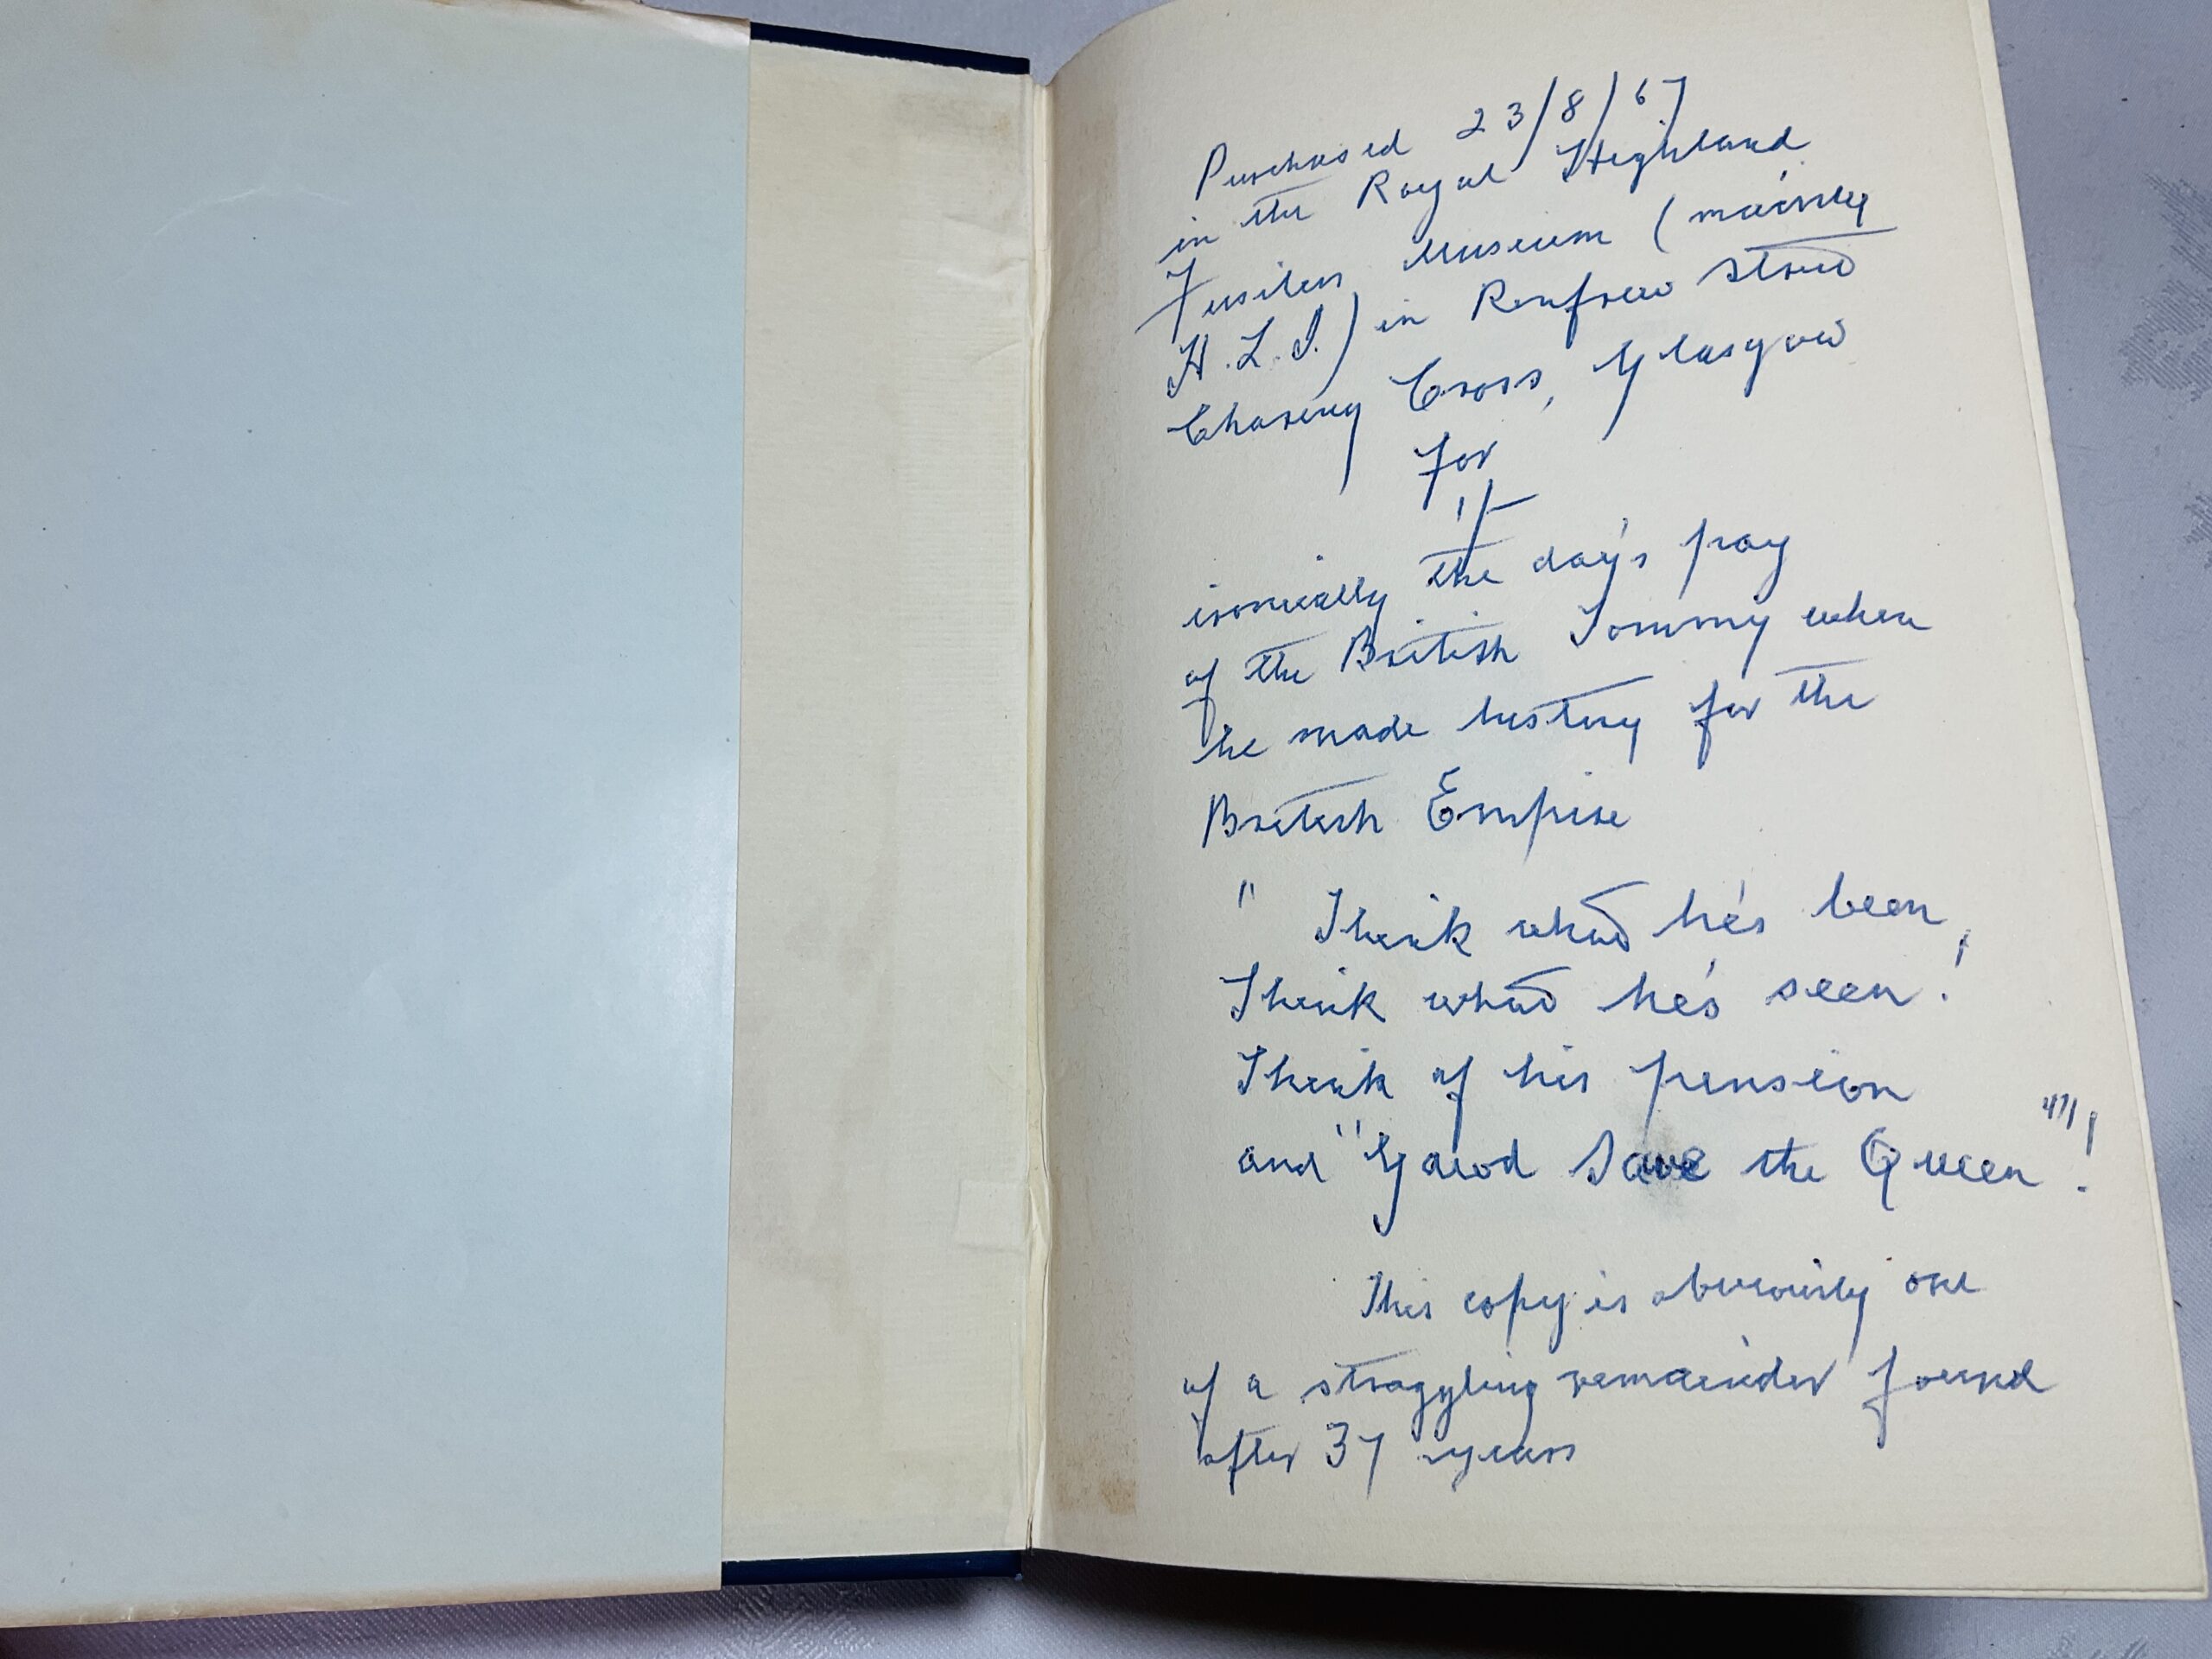 Purchased 23/8/67
in the Royal Highland
Fusiliers Museum (mainly
H.L.I.) in Renfrew Street
Charing Cross, Glasgow
for
1/-
ironically the day's pay
of the British Tommy when
he made history for the
British Empire
" Think what he's been,
Think what he's seen!
Think of his pension
and "Gawd Save the Queen""!
This copy is obviously one
of a straggling remainder found
after 37 years